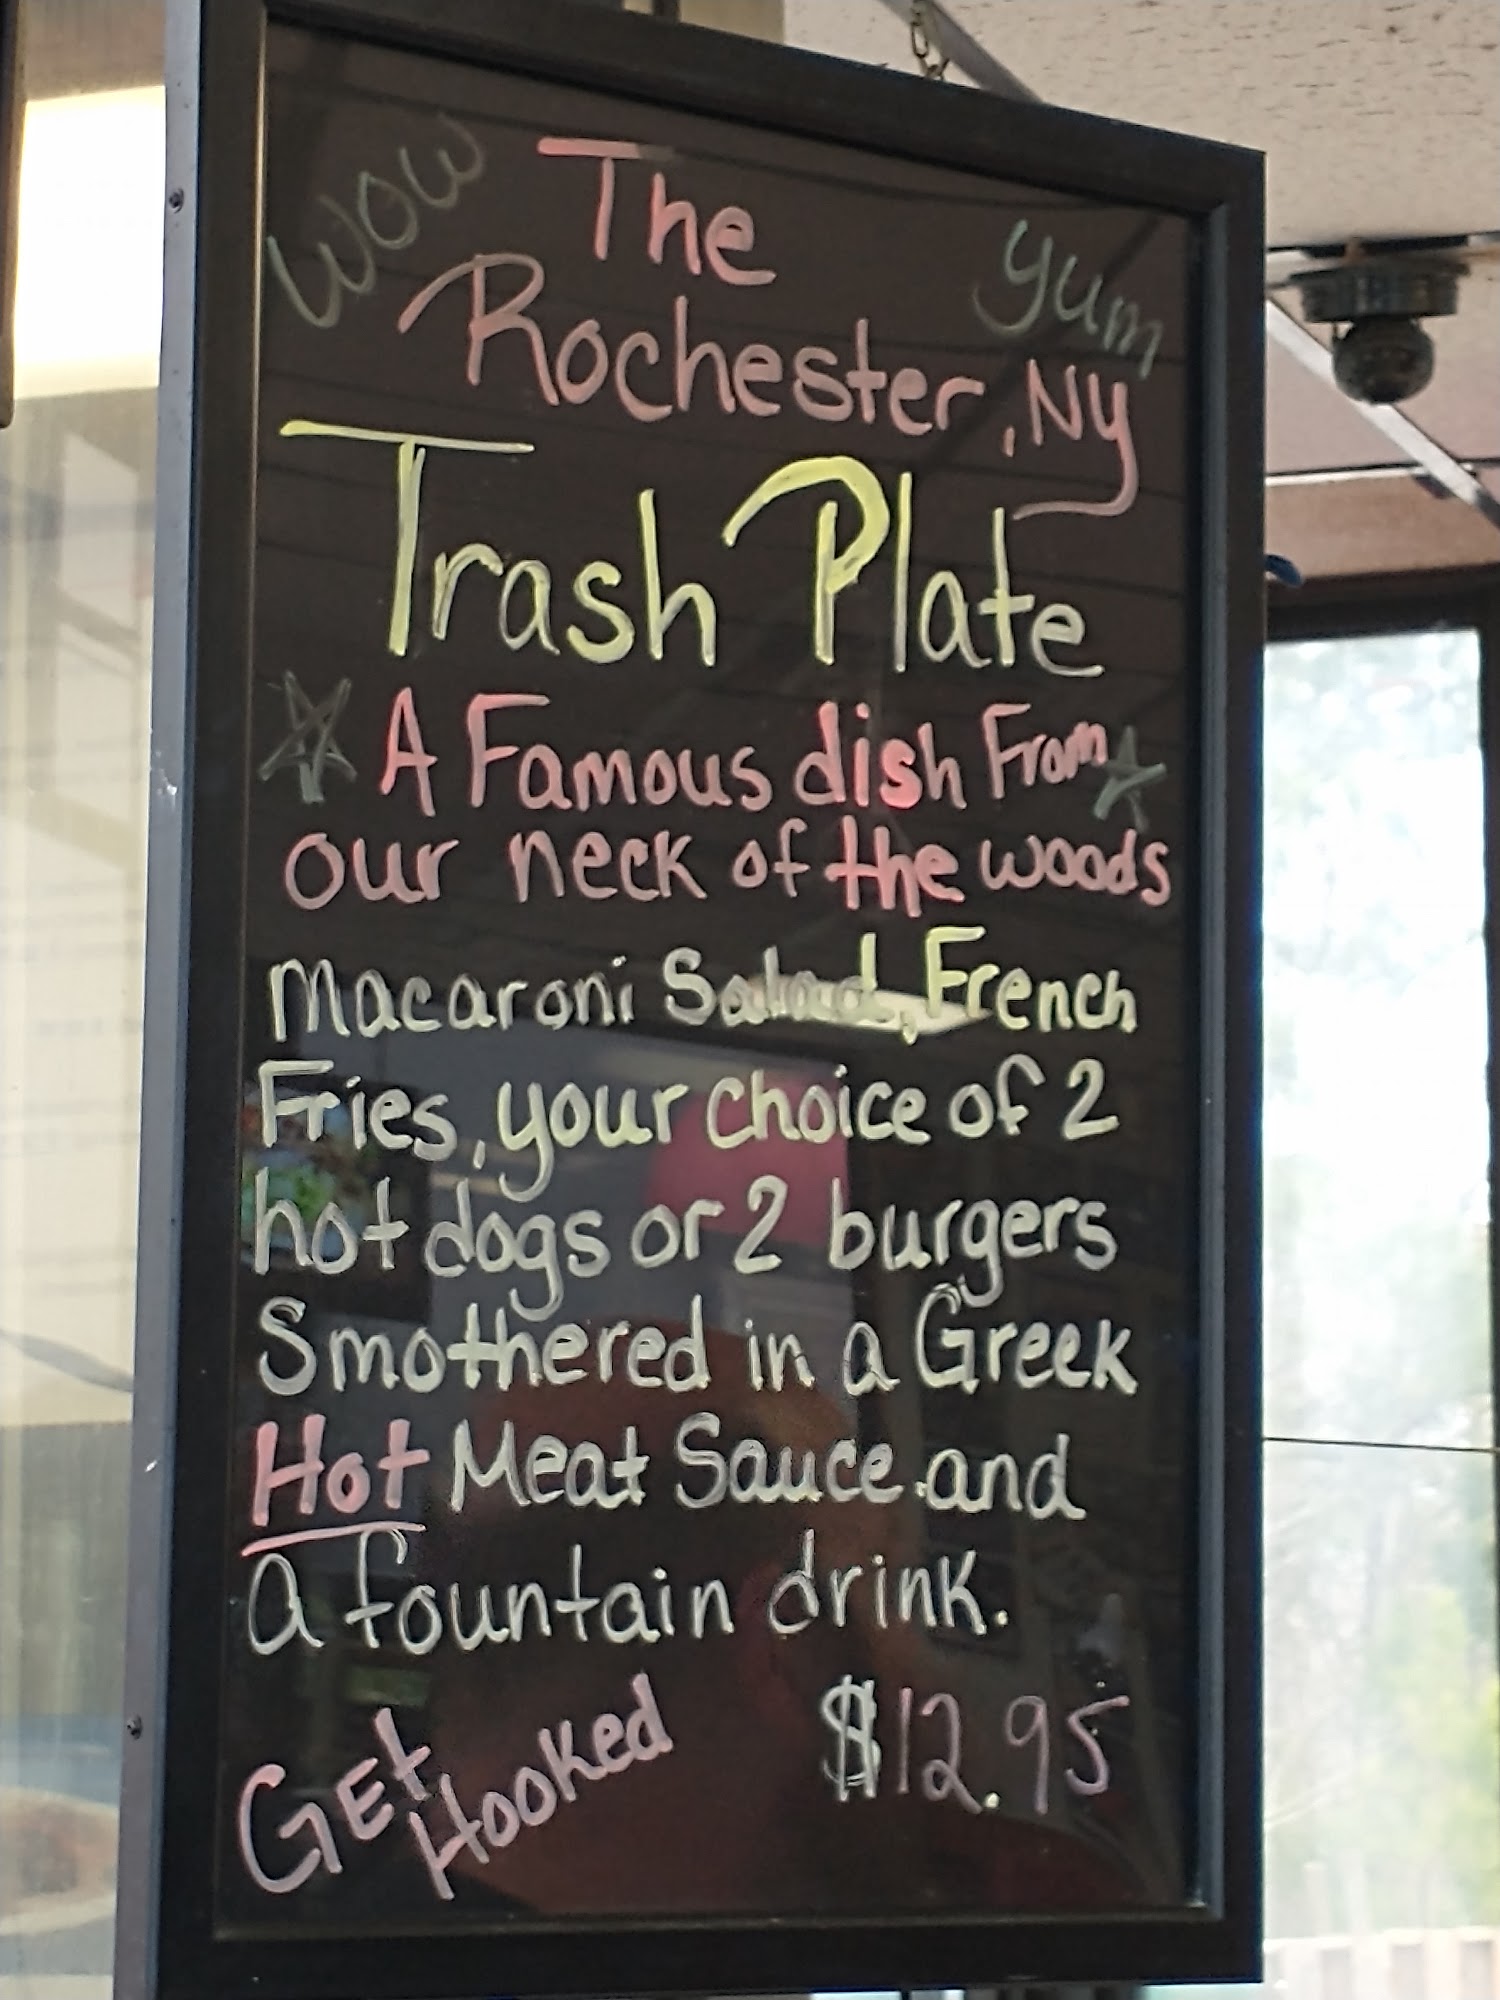 Wow
The
Yum
Rochester, NY
Trash Plate
A Famous dish From
our neck of the woods
Macaroni Salad, French
Fries, your choice of 2
hot dogs or 2 burgers
Smothered in a Greek
Hot Meat Sauce and
A fountain drink.
Get
Hooked
$12.95